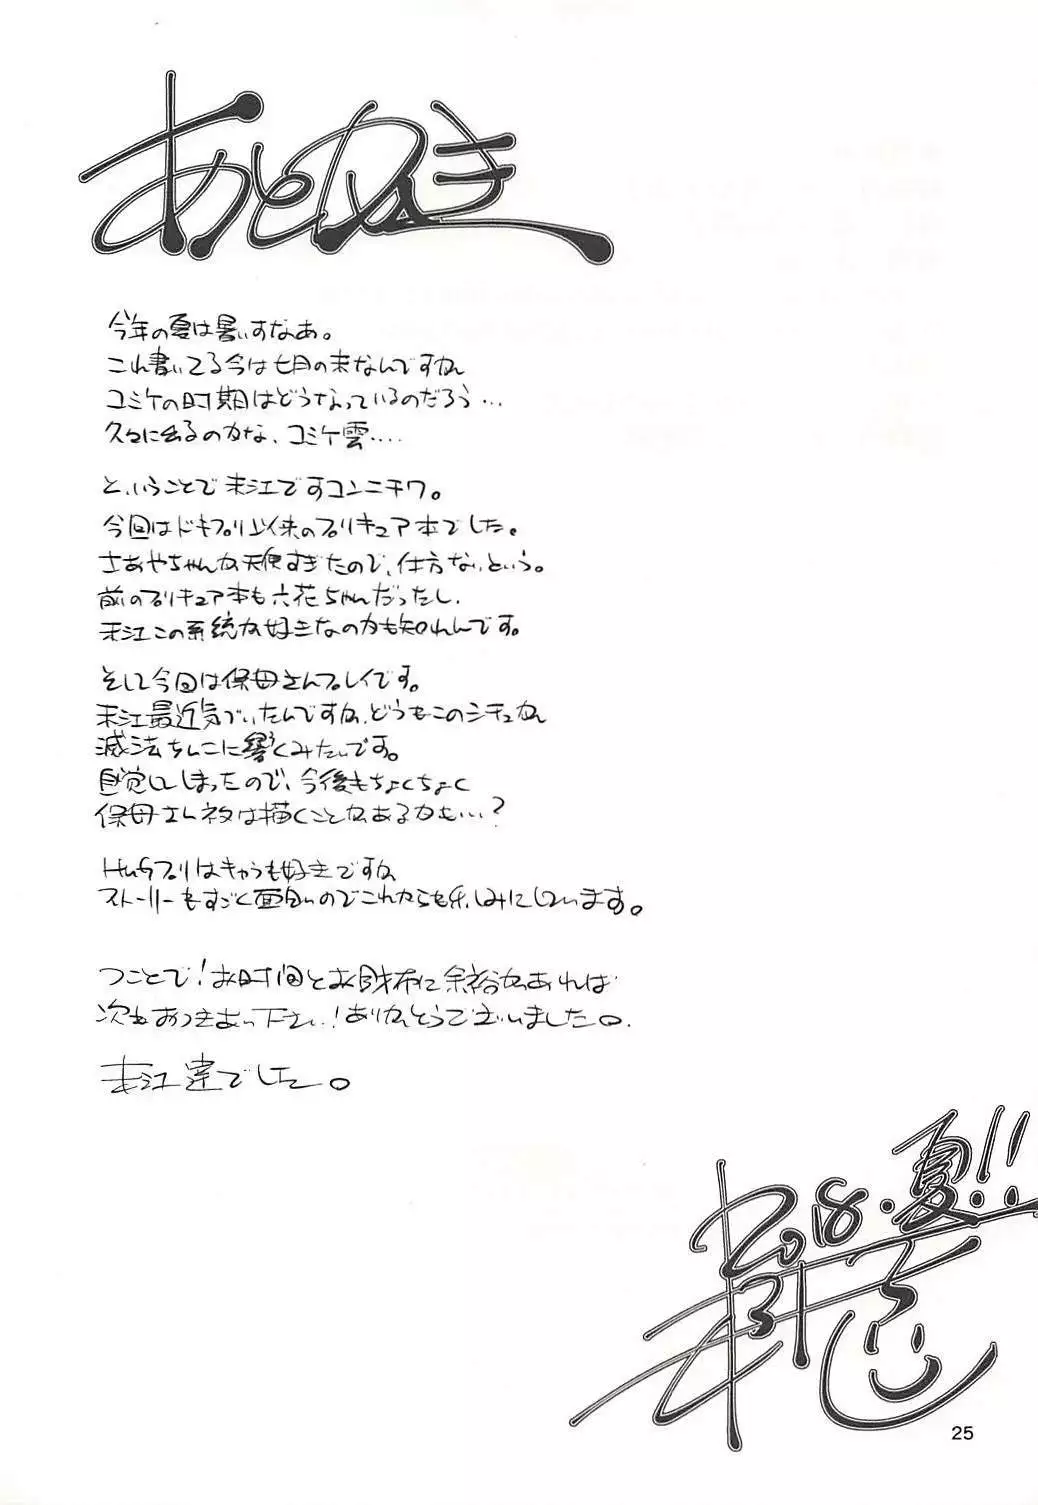 あとがき
今年の夏は暑いすなあ。
これ書いてる今は七月の末なんですが
コミケの時期はどうなっているのだろう…
久々に出るのかな、コミケ雲‥‥
と、いうことで末江ですコンニチワ。
今回はドキプリ以来のプリキュア本でした。
さあやちゃんが天使すぎたので、仕方ないという。
前のプリキュア本も六花ちゃんだったし、
末江この系統が好きなのかも知れんです。
そして今回は保母さんプレイです。
末江最近気づいたんですが、どうもこのシチュが
滅法ちんこに響くみたいです。
自覚してしまったので、今後もちょくちょく
保母さんネタは描くことがあるかも…?
Hugプリはキャラも好きですが
ストーリーもすごく面白いのでこれからも楽しみにしています。
つことで!お時間とお財布に余裕があれば
次もおつきあい下さい!ありがとうございました。
末江 達でした。
2018.夏!!
25